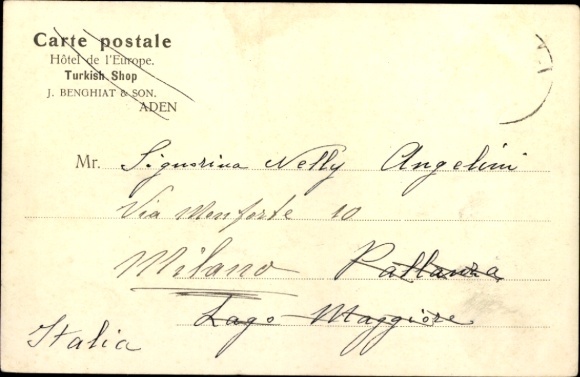 Carte postale
Hôtel de l'Europe.
Turkish Shop
J. BENGHIAT & SON.
ADEN
Mr. Signorina Nelly Angelini
Via Monforte 10
Milano Pallanza
Lago Maggiore
Italia